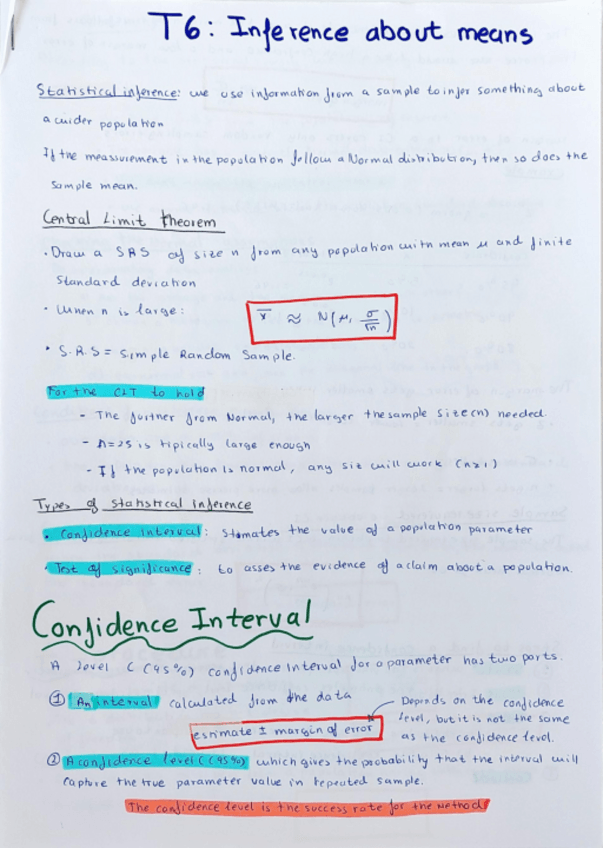 T6: Inference about means
Statistical inference: we use information from a sample to infer something about
a wider population
If the measurement in the population follow a Normal distribution, then so does the
Sample mean.
Central Limit theorem
· Draw a SRS of size n from any population with mean μ and finite
Standard deviation
· When n is large:
x̄ ≈ N(μ, σ/√n)
· S.R.S = Simple Random Sample.
For the CLT to hold
- The further from Normal, the larger the sample size (n) needed.
- n=25 is tipically large enough
- If the population is normal, any siz will work (n≥1)
Types of Statistical Inference
· Confidence interval: Stimates the value of a population parameter
· Test of significance: to asses the evidence of a claim about a population.
Confidence Interval
A level C (95%) confidence interval for a parameter has two parts.
① An interval calculated from the data
estimate ± margin of error
Depends on the confidence
level, but it is not the same
as the confidence level.
② A confidence level C (95%) which gives the probability that the interval will
capture the true parameter value in repeated sample.
The confidence level is the success rate for the method